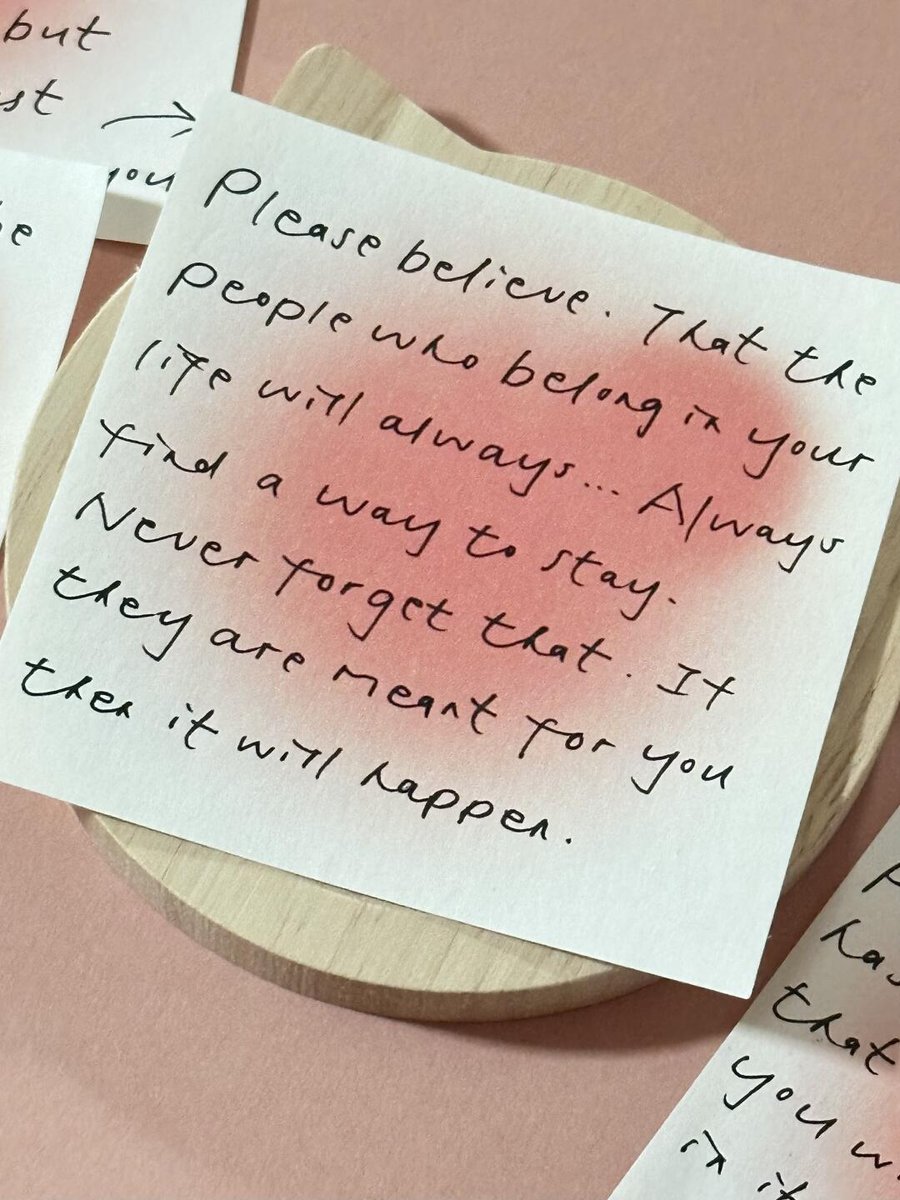 but
st →
you
he
Please believe. That the
people who belong in your
life will always... Always
find a way to stay.
Never forget that. If
they are meant for you
then it will happen.
has
that
you w
in it